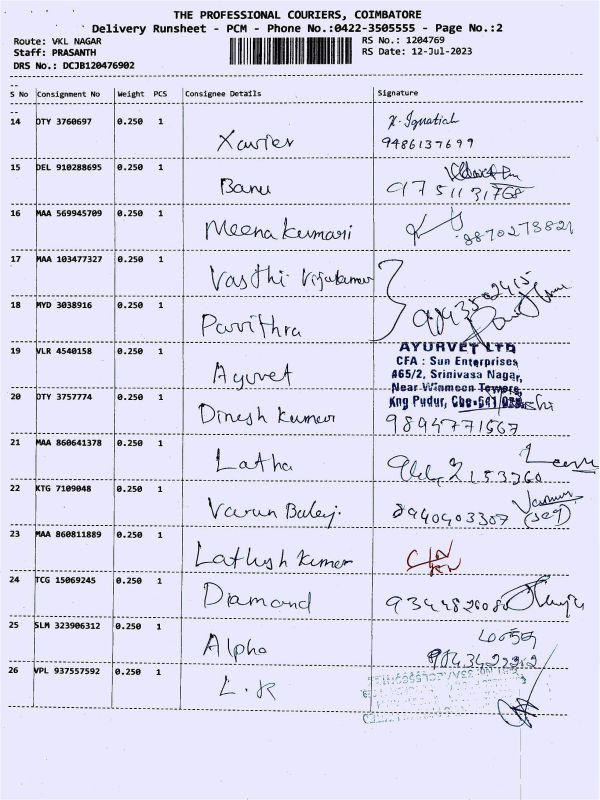 THE PROFESSIONAL COURIERS, COIMBATORE
Delivery Runsheet - PCM - Phone No.:0422-3505555 - Page No.:2
Route: VKL NAGAR RS No.: 1204769
Staff: PRASANTH RS Date: 12-Jul-2023
DRS No.: DCJB120476902
--
S No Consignment No Weight PCS Consignee Details Signature
--
14 OTY 3760697 0.250 1 X. Ignatiah
Xavier 9486137699
15 DEL 910288695 0.250 1
Banu 9751131768
16 MAA 569945709 0.250 1
Meena kumari 8870273821
17 MAA 103477327 0.250 1
Vasthi Vijakumar
18 MYD 3038916 0.250 1
Pavithra
19 VLR 4540158 0.250 1 AYURVET LTD
CFA : Sun Enterprises
Ayuvet 465/2, Srinivasa Nagar,
Near Winmeen Towers,
20 OTY 3757774 0.250 1 Kng Pudur, Cbe-641
Dinesh kumar 9894771567
21 MAA 860641378 0.250 1
Latha 2153260
22 KTG 7109048 0.250 1
Varun Balaji. 8940403307
23 MAA 860811889 0.250 1
Lathish kumar
24 TCG 15069245 0.250 1
Diamond
25 SLM 323906312 0.250 1
Alpho
26 VPL 937557592 0.250 1
L. R